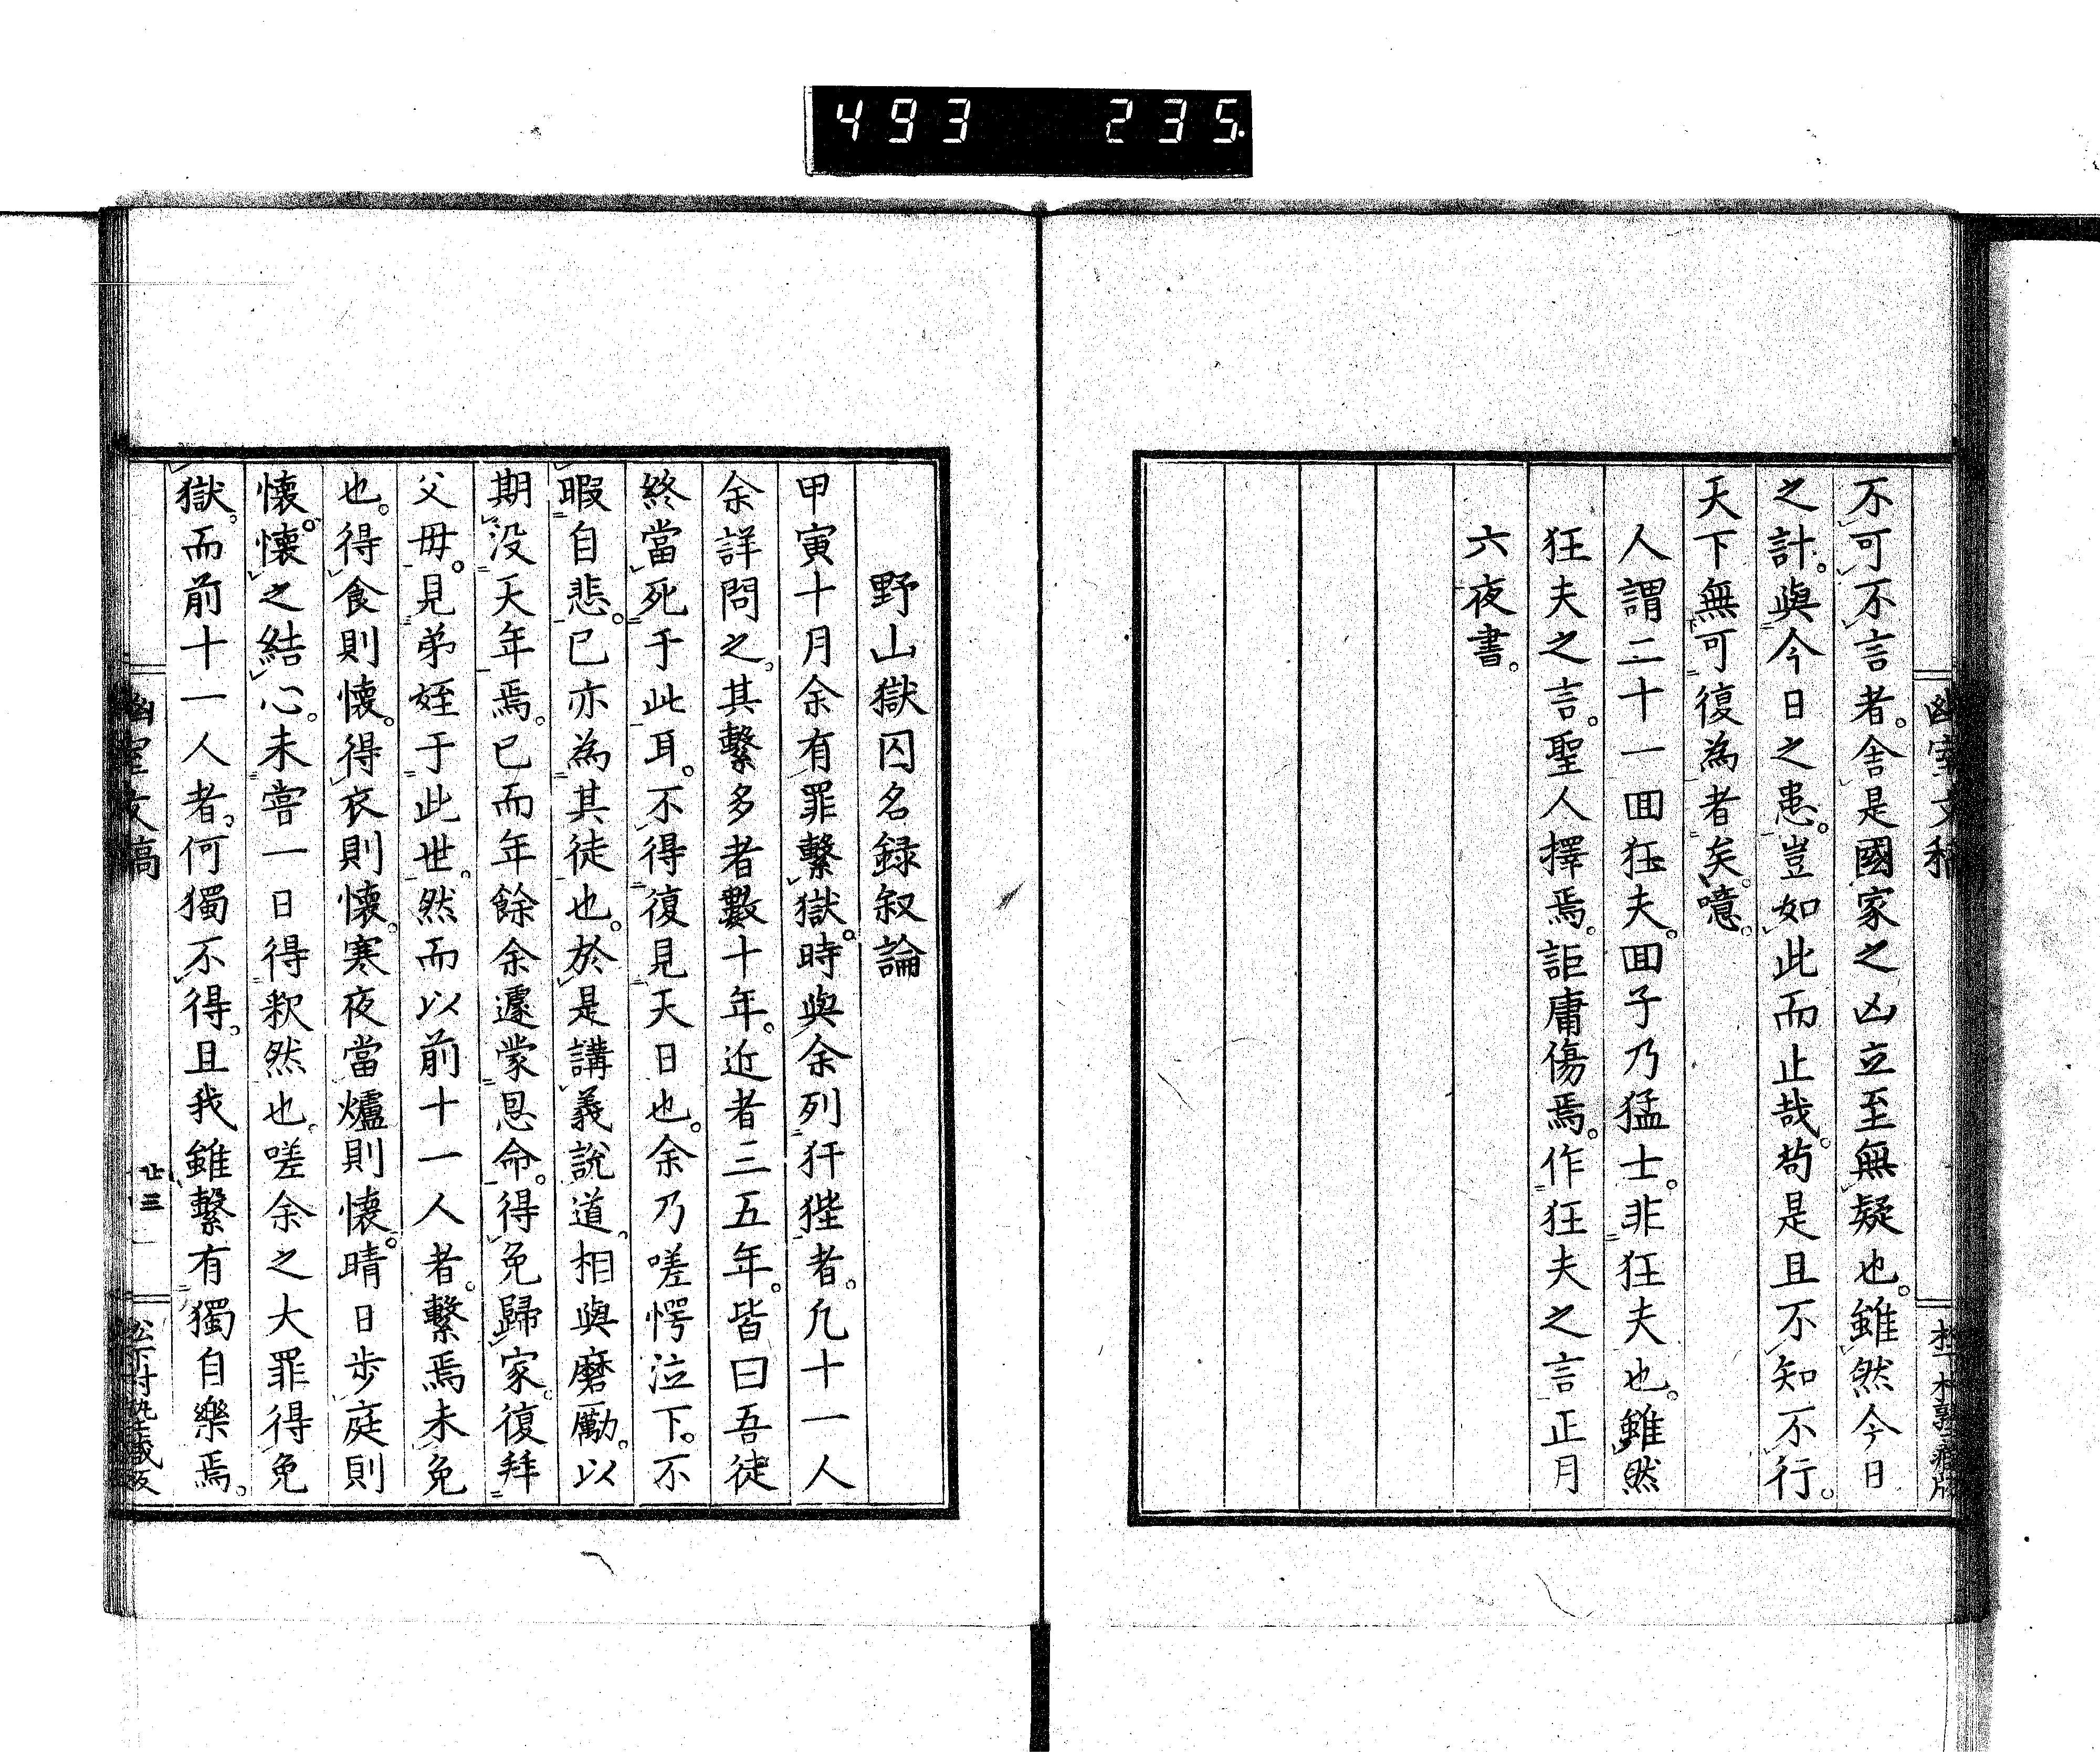 493 235
幽室文稿
不可不言者。舎是國家之凶立至無疑也。雖然今日
之計。與今日之患。豈如此而止哉。苟是且不知不行。
天下無可復為者矣。噫。
人謂二十一回狂夫。回子乃猛士。非狂夫也。雖然
狂夫之言。聖人擇焉。詎庸傷焉。作狂夫之言正月
六夜書。
野山獄囚名録叙論
甲寅十月余有罪繋獄。時與余列犴狴者。凡十一人
余詳問之。其繋多者數十年。近者三五年。皆曰吾徒
終當死于此耳。不得復見天日也。余乃嗟愕泣下。不
暇自悲。已亦為其徒也。於是講義說道。相與磨勵。以
期没天年焉。已而年餘余遽蒙恩命。得免歸家。復拜
父母。見弟姪于此世。然而以前十一人者。繋焉未免
也。得食則懐。得衣則懐。寒夜當爐則懐。晴日歩庭則
懐。懐之結心。未嘗一日得釈然也。嗟余之大罪得免
獄。而前十一人者。何獨不得。且我雖繋有獨自樂焉。
幽室文稿
廿三
松下村塾蔵版